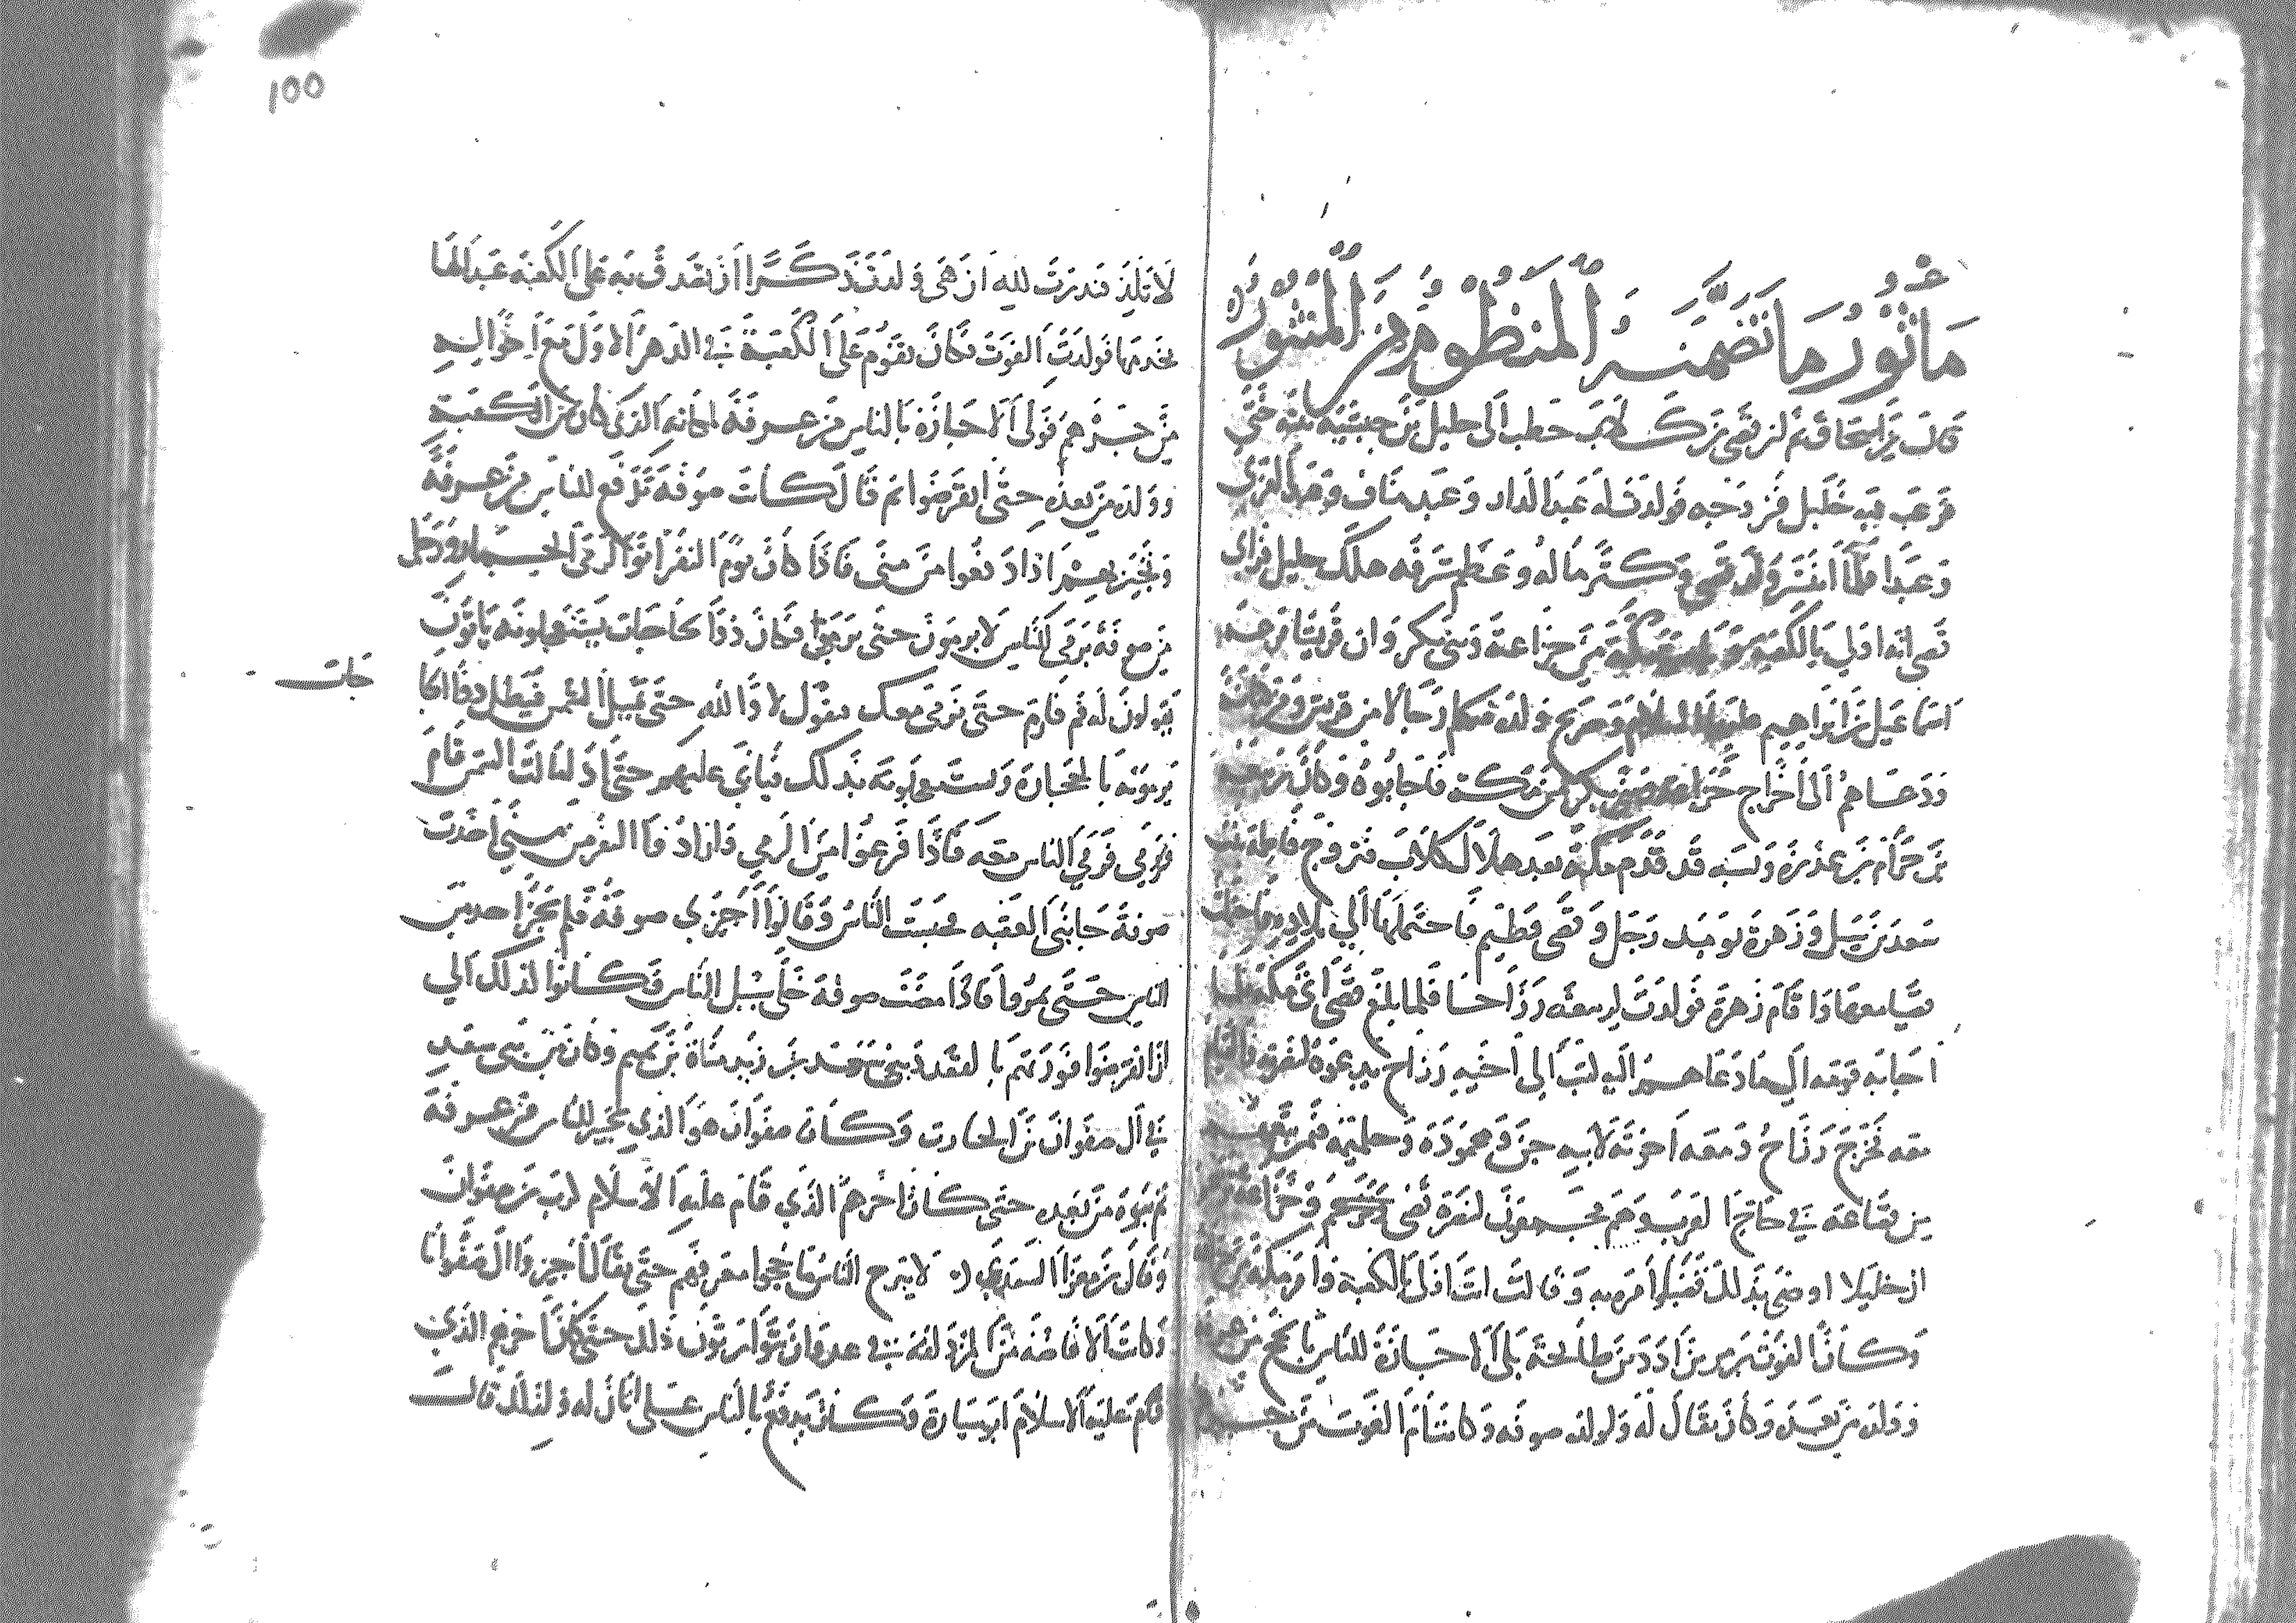 مأثور ما تضمنه المنظوم من المنثور
قال بن اسحاق ثم ان قصي بن كلاب خطب الى حليل بن حبشيه بنته حبى
فرغب فيه حليل فزوجه فولدت له عبد الدار وعبد مناف وعبد العزى
وعبدا فلما انتشر ولد قصي وكثر ماله وعظم شرفه هلك حليل فراى
قصي انه اولي بالكعبه مكة من خزاعة وبنى بكر وان قريشا
اسماعيل بن ابراهيم عليهما السلام وصريح ولده فكلم رجالا من قريش ومن
ودعاهم الى اخراج خزاعة وبنى بكر من مكة فاجابوه وكان ربيعة
بن حرام بن عذرة ونسبه قد قدم مكة بعد هلاك كلاب فتزوج فاطمة بنت
سعد بن سيل وزهرة يوميد رجل وقصى فطيم فاحتملها الي بلاده
قصيا معها واقام زهرة فولدت لربيعه رزاحا فلما بلغ قصى اتى مكة
اجابه قومه الى ما دعاهم اليه كتب الى اخيه رزاح يدعوه لنصرته
معه فخرج رزاح ومعه اخوته لابيه حن ومحمودة وجلهمة فمن تبعهم
من قضاعة في حاج العرب وهم مجمعون لنصرة قصى وخزاعة
ان حليلا اوصى بذلك قصيا وامره به وقالت انت اولى بالكعبة وامر مكة من
وكان الغوث بن مر بن اد بن طابخة يلى الاجازة للناس بالحج من عرفة
وولده من بعده وكان يقال له ولولده صوفه وكانت ام الغوث من جرهم
100
لا تلد فنذرت لله ان هى ولدت ذكرا ان تصدق به على الكعبه عبدا لها
يخدمها فولدت الغوث فكان يقوم على الكعبة في الدهر الاول مع اخواله
من جرهم فولى الاجازة بالناس من عرفة لمكانه الذى كان من الكعبة
وولده من بعده حتى انقرضوا ثم قال كانت صوفة تدفع للناس من عرفة
وتجيز بهم اذا دفعوا من منى فاذا كان يوم النفر اتوا لرمى الجمار ورجل
من صوفة يرمى للناس لا يرمون حتى يرمى فكان ذووا الحاجات يستعجلونه ياتون
جات
يقولون له قم فارم حتى نرمى معك فيقول لا والله حتى تميل الشمس فيظل ذووا الحا
يرمونه بالحجارة ويستعجلونه بذلك فيابى عليهم حتى اذا مالت الشمس قام
فرمى ورمى الناس معه فاذا فرغوا من الرمي وارادوا النفر من منى اخذت
صوفة جانبى العقبه فحبست الناس وقالوا اجيزي صوفة فلم يجز احد من
الناس حتى يمروا فاذا مضت صوفة خلى سبيل الناس فكانوا لذلك الي
ان انقرضوا فورثهم بالقعدد بنى سعد بن زيد مناة بن تميم وكان من بنى سعد
في آل صفوان بن الحارث وكان صفوان هو الذي يجيز للناس من عرفة
ثم بنوه من بعده حتى كان اخرهم الذي قام عليه الاسلام كرب بن صفوان
وقال بن مغرا السعدي لا يبرح الناس ما حجوا معرفهم حتى يقال اجيزوا ال صفوانا
وكانت الافاضة من المزدلفة في عدوان يتوارثون ذلك حتى كان اخرهم الذي
قام عليه الاسلام ابو سيارة وكان يدفع بالناس على اتان له ولذلك قالت